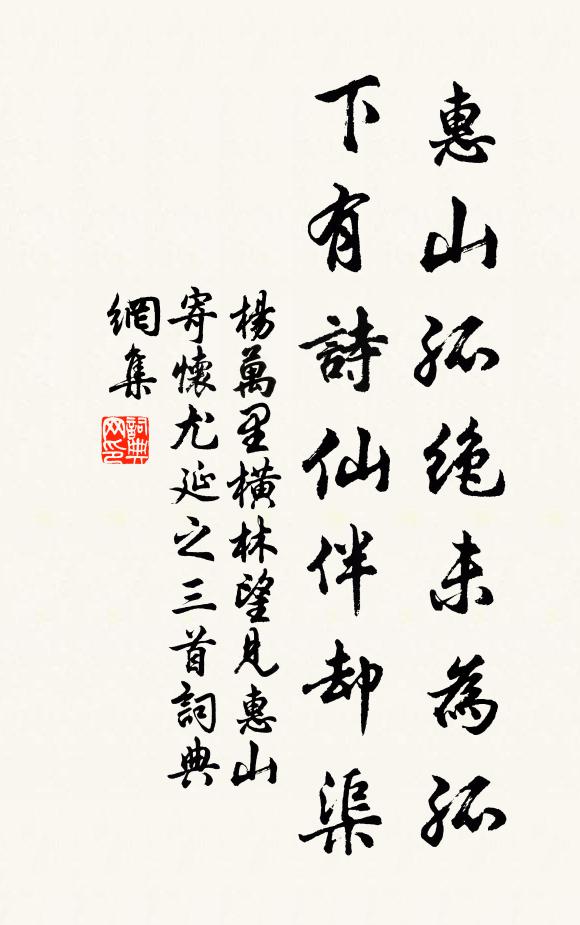 惠山孤絶未為孤
下有詩仙伴却渠
楊萬里橫林望見惠山
寄懷尤延之三首詞典
網集
詞典网印